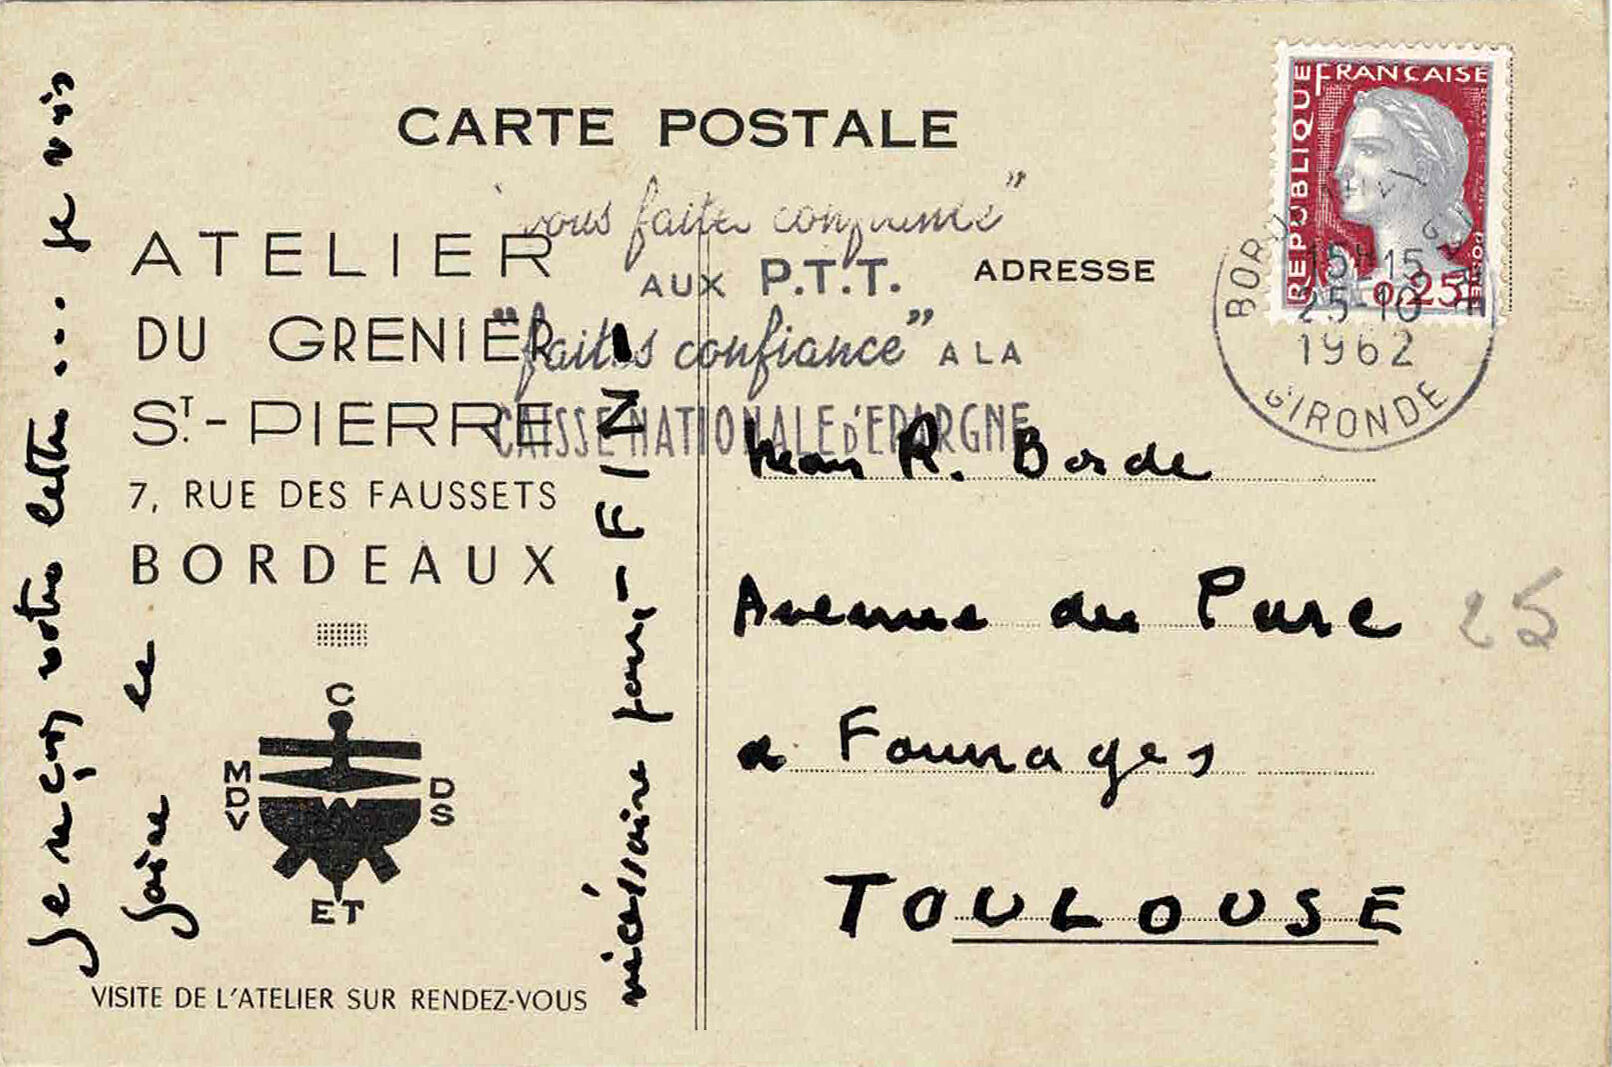 CARTE POSTALE
"vous faites confiance"
AUX P.T.T.
"faites confiance" A LA
CAISSE NATIONALE D'EPARGNE
ATELIER
DU GRENIER
ST.-PIERRE
7, RUE DES FAUSSETS
BORDEAUX
C
MDV
DS
ET
VISITE DE L'ATELIER SUR RENDEZ-VOUS
Je reçois votre lettre... je vais
faire le
nécessaire pour - FINI -
ADRESSE
REPUBLIQUE FRANCAISE
POSTES
0,25
BORDEAUX
15H15
25-10
1962
GIRONDE
Jean R. Borde
Avenue du Parc
à Fourrages
TOULOUSE
25